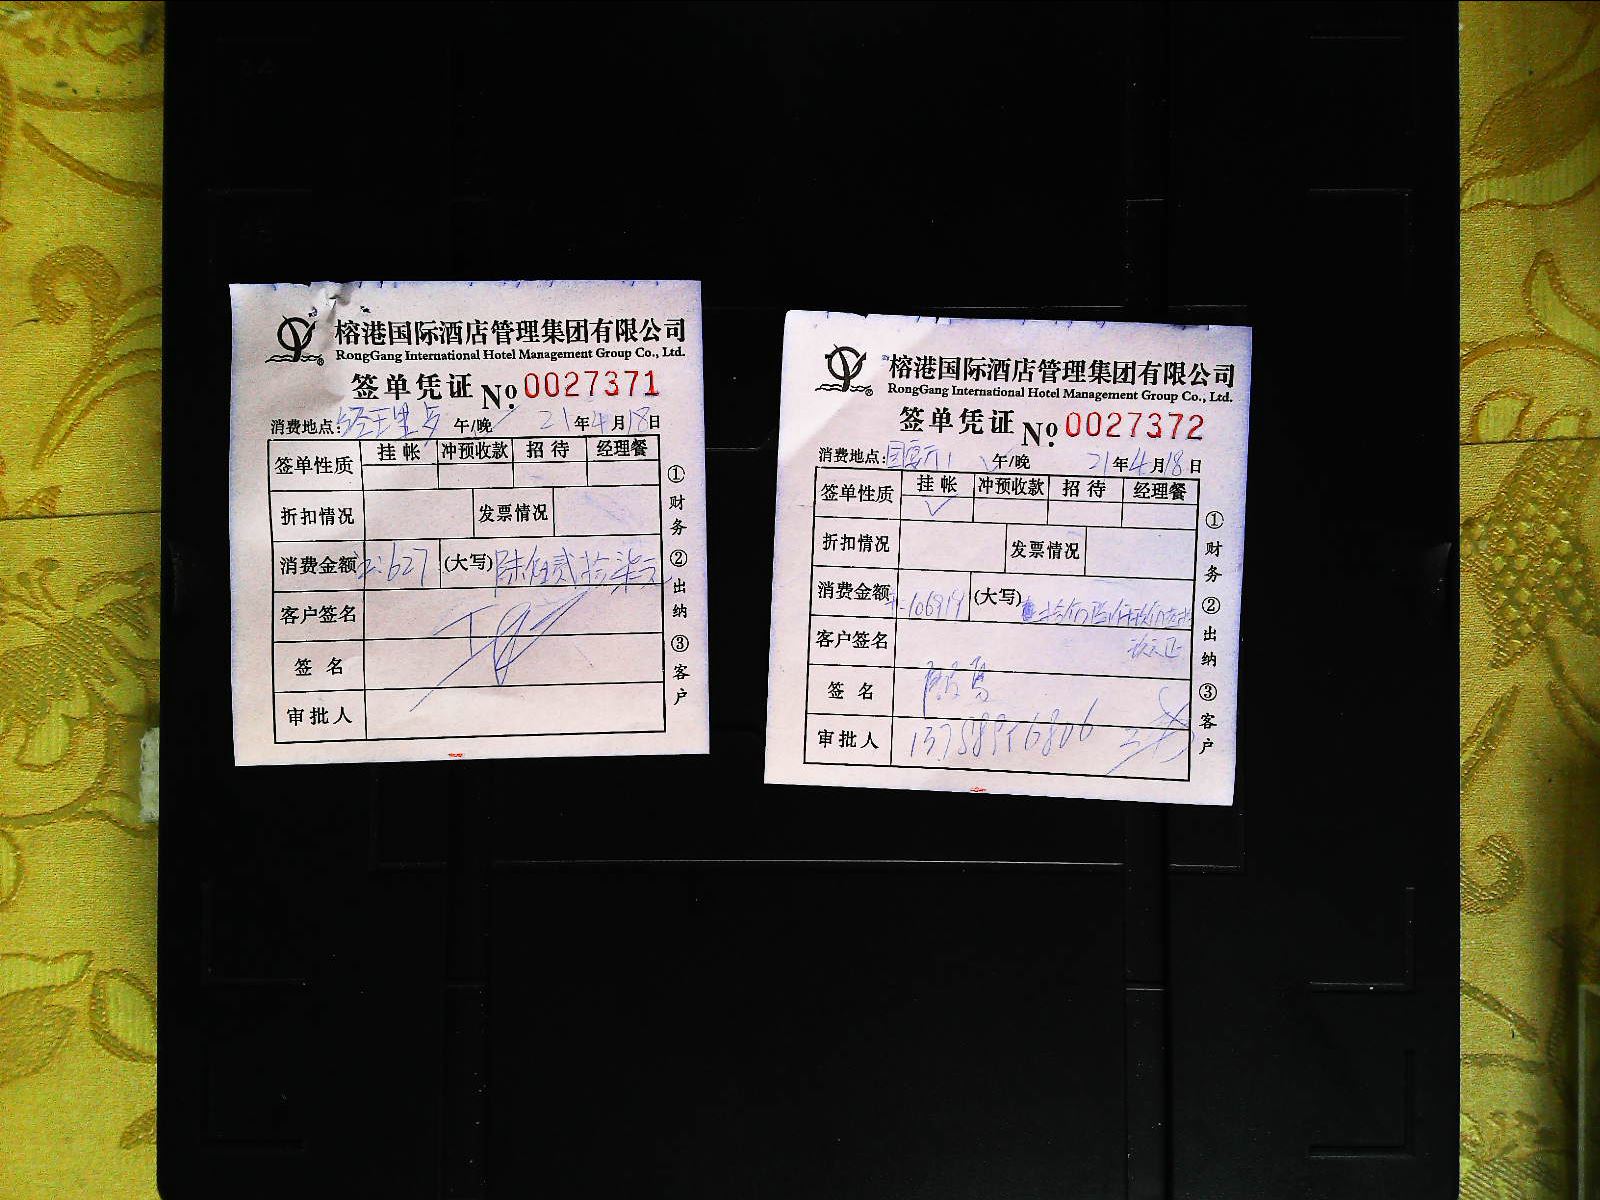 榕港国际酒店管理集团有限公司
RongGang International Hotel Management Group Co., Ltd.
签单凭证 No. 0027371
消费地点: 午/晚 21年4月18日
签单性质 挂帐 冲预收款 招待 经理餐
折扣情况 发票情况
消费金额 627 (大写) 陆佰贰拾柒元
客户签名
签名
审批人
①财务 ②出纳 ③客户
榕港国际酒店管理集团有限公司
RongGang International Hotel Management Group Co., Ltd.
签单凭证 No. 0027372
消费地点: 午/晚 21年4月18日
签单性质 挂帐 冲预收款 招待 经理餐
折扣情况 发票情况
消费金额 (大写)
客户签名
签名
审批人
①财务 ②出纳 ③客户